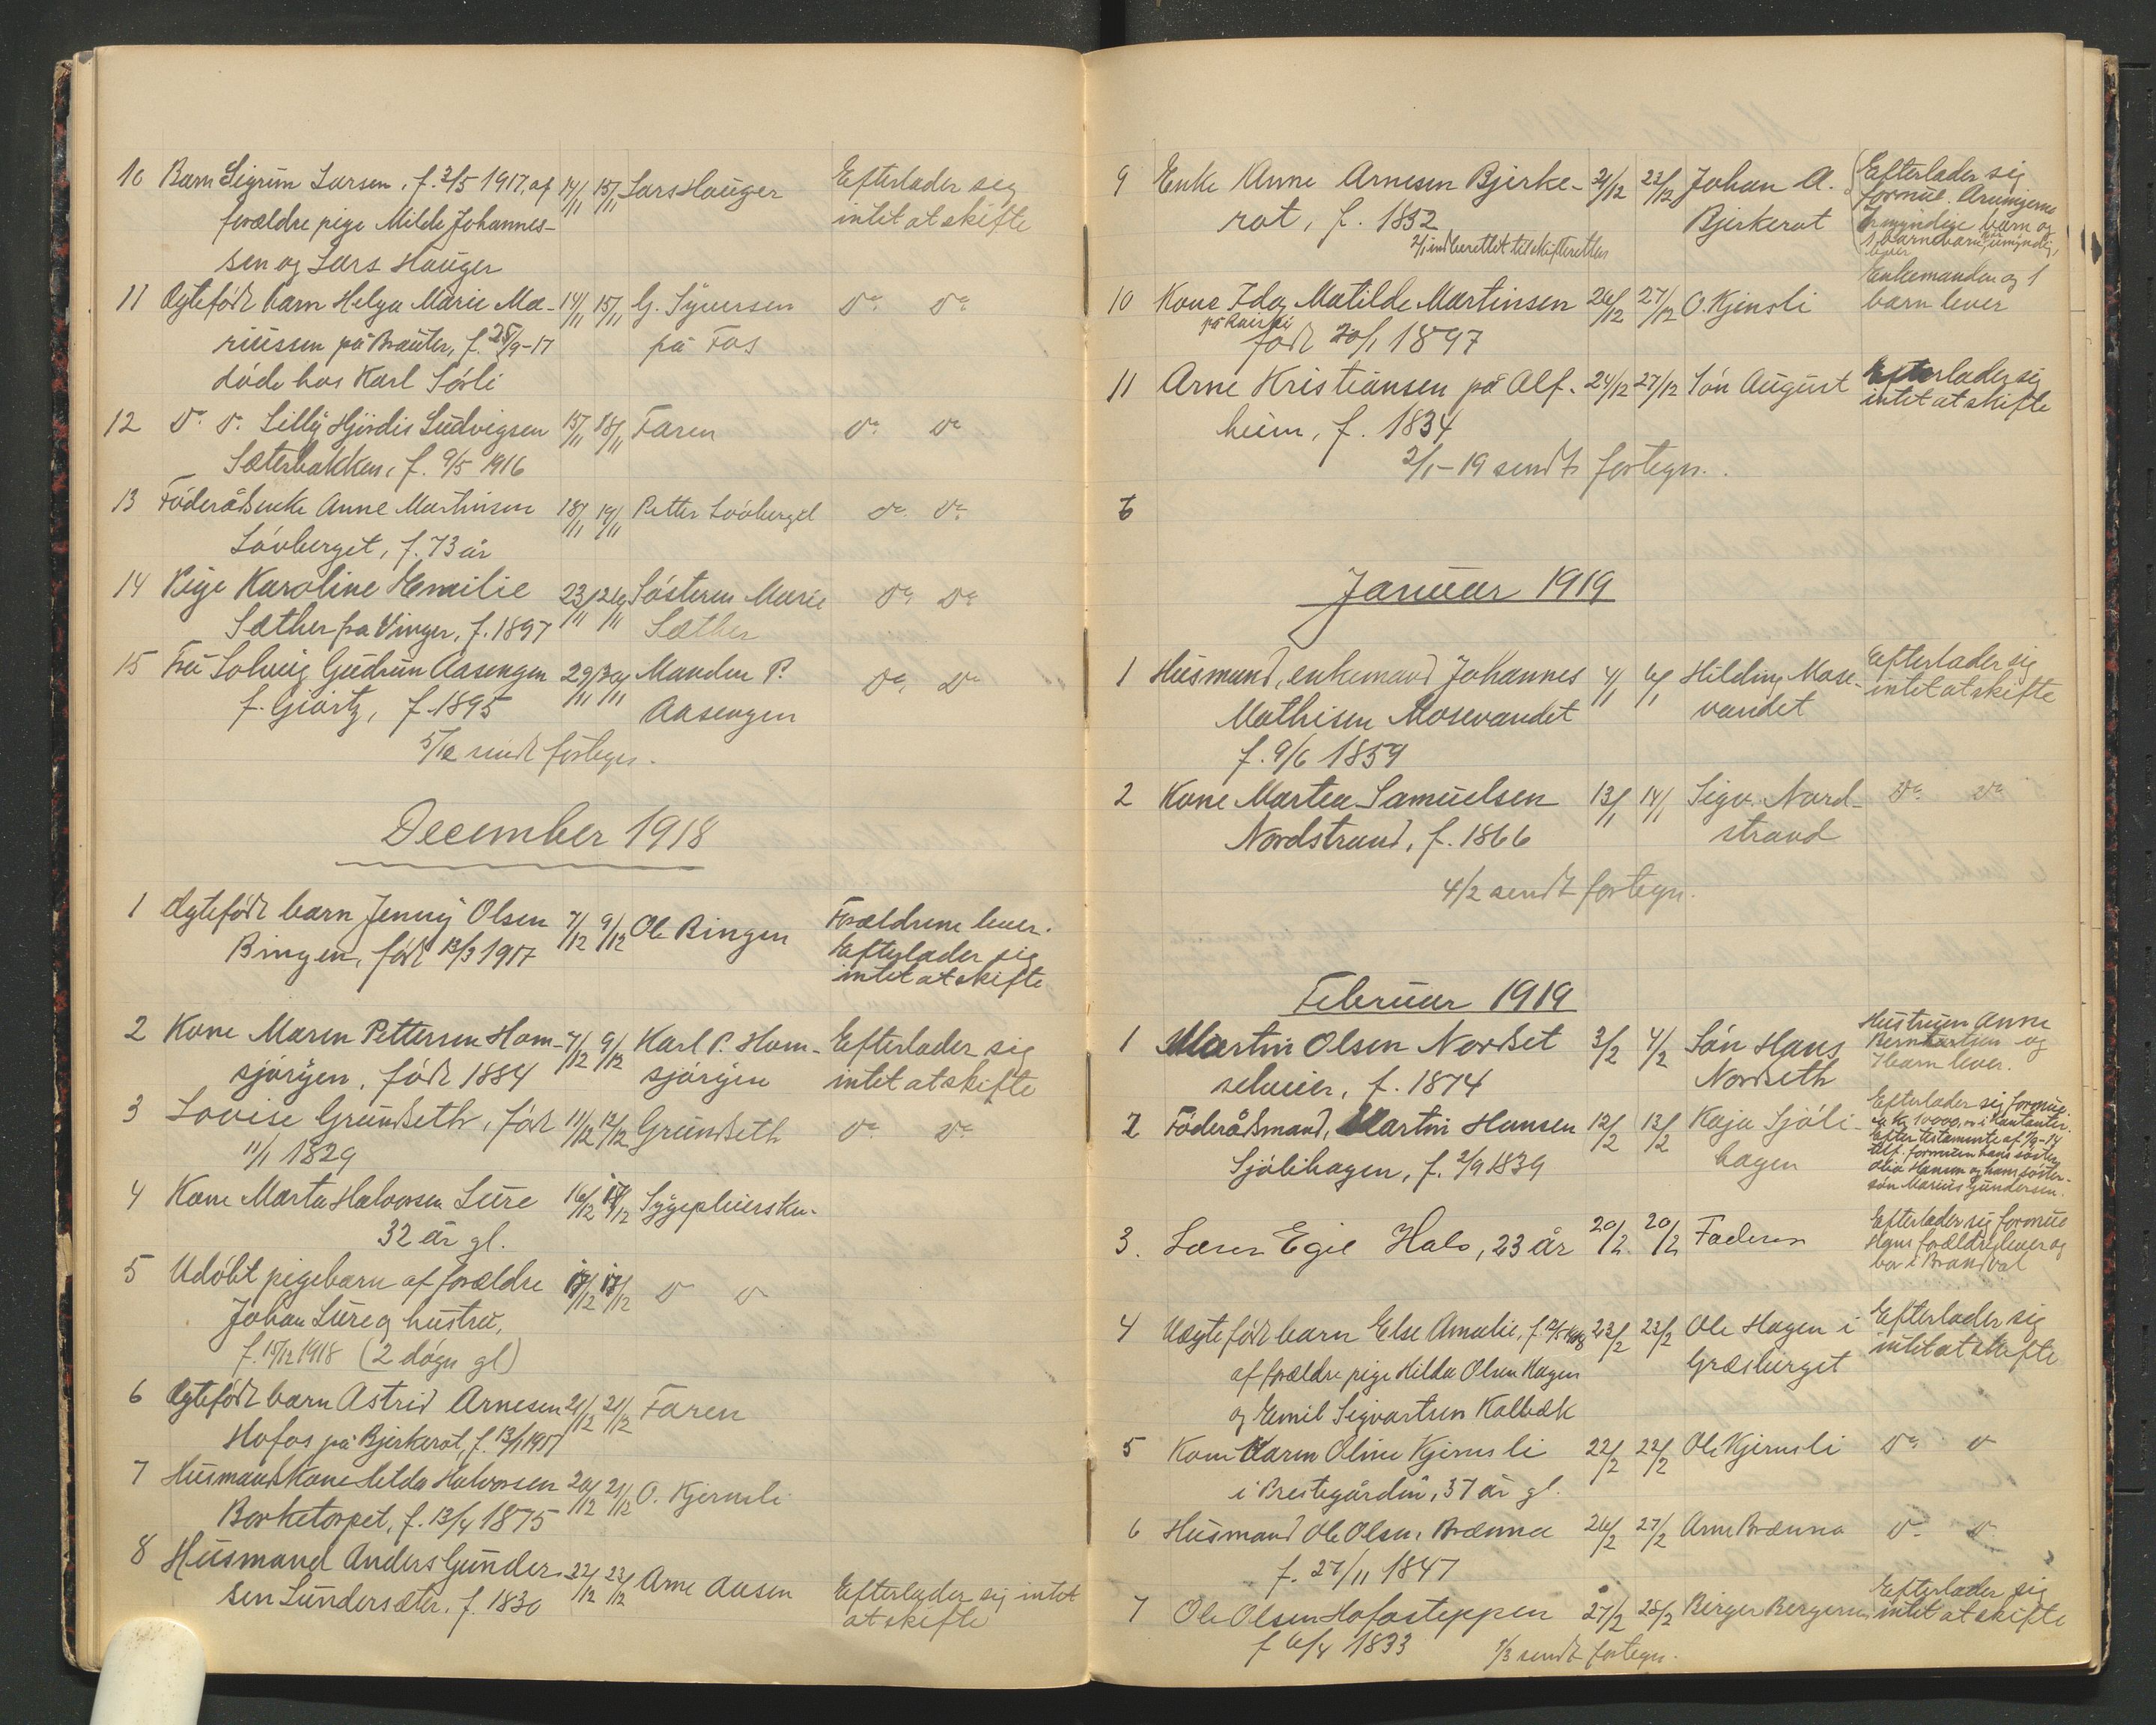 10 Barn Sigrun Larsen, f. 2/5 1917, af 14/11 15/11 Lars Hauger Efterlader sig
forældre pige Milde Johannes- intet at skifte
sen og Lars Hauger
11 Ægtefødt barn Helga Marie Ma- 14/11 15/11 G. Syversen Do Do
riussen på Brauter, f. 28/9-17 på Fos
døde hos Karl Sørli
12 Do Do Lilly Hjördis Ludvigsen 15/11 18/11 Faren Do Do
Sæterbakken, f. 9/5 1916
13 Føderådsenke Anne Martinsen 18/11 19/11 Petter Løvberget Do Do
Løvberget, f. 73 år
14 Pige Karoline Emilie 23/11 26/11 Søsteren Marie Do Do
Sæther fra Vinger, f. 1897 Sæther
15 Fru Solveig Gudrun Aasengen 29/11 30/11 Manden P. Do Do
f. Giørtz, f. 1895 Aasengen
5/12 sendt fortegn.
December 1918
1 Ægtefødt barn Jenny Olsen 7/12 9/12 Ole Bingen Forældrene lever.
Bingen, født 13/3 1917 Efterlader sig
intet at skifte
2 Kone Maren Pettersen Hom- 7/12 9/12 Karl P. Hom- Efterlader sig
sjørgen, født 1884 sjørgen intet at skifte
3 Lovise Grundseth, født 11/12 12/12 Grundseth Do Do
11/1 1829
4 Kone Marta Halvorsen Lure 16/12 17/12 Sygepleiersken
32 år gl.
5 Udøbt pigebarn af forældre 17/12 17/12 Do Do
Johan Lure og hustru,
f. 15/12 1918 (2 døgn gl)
6 Ægtefødt barn Astrid Arnesen 21/12 21/12 Faren
Hofos på Bjerkerot, f. 13/1 1917
7 Husmandskone Helda Halvorsen 20/12 21/12 O. Kjernsli
Borketorpet, f. 13/4 1875
8 Husmand Anders Gunder- 22/12 23/12 Arne Aasen Efterlader sig intet
sen Lundersæter, f. 1830 at skifte
9 Enke Anne Arnesen Bjerke- 21/12 23/12 Johan A. Efterlader sig
rot, f. 1852 Bjerkerot formue. Arvingerne
2/1 indberettet til skifteretten myndige børn og
1 barnebarn umyndig,
lever
10 Kone Ida Matilde Martinsen 26/12 27/12 O. Kjernsli Enkemanden og 1
født 20/1 1897 barn lever
11 Arne Kristiansen på Alf- 24/12 27/12 Søn August Efterlader sig
heim, f. 1834 intet at skifte
2/1-19 sendt fortegn.
6
Januar 1919
1 Husmand, enkemand Johannes 4/1 6/1 Hilding Mose- Efterlader sig
Mathisen Mosevandet vandet intet at skifte
f. 9/6 1859
2 Kone Martea Samuelsen 13/1 14/1 Sigv. Nord- Do Do
Nordstrand, f. 1866 strand
4/2 sendt fortegn.
Februar 1919
1 Martin Olsen Nordset 3/2 4/2 Søn Hans Hustruen Anne
selveier, f. 1874 Nordseth Berntsen og
7 barn lever.
2 Føderådsmand, Martin Hansen 12/2 13/2 Kaja Sjøli- Efterlader sig formue.
Sjølihagen, f. 2/9 1839 hagen ca. Kr. 10000,00 i Kontanter.
Efter testamente af 7/9-14
tilf. formuen hans søster
Olia Hansen og hans søster-
søn Marius Gundersen.
3. Lærer Egil Hals, 23 år 20/2 20/2 Faderen Efterlader sig formue
Hans forældre lever og
bor i Brandval
4 Uægtefødt barn Else Amalie, 23/2 23/2 Ole Hagen i Efterlader sig
af forældre pige Hilda Olsen Hagen Græsberget intet at skifte
og Emil Sigvartsen Kalbæk
5 Kone Karen Oline Kjernsli 22/2 22/2 Ole Kjernsli Do Do
i Prestegården, 37 år gl.
6 Husmand Ole Olsen Brænna 26/2 27/2 Arne Brænna Do Do
f. 27/11 1847
7 Ole Olsen Hofosteppen 27/2 28/2 Birger Bergersen Efterlader sig
f. 6/4 1833 intet at skifte
1/3 sendt fortegn.